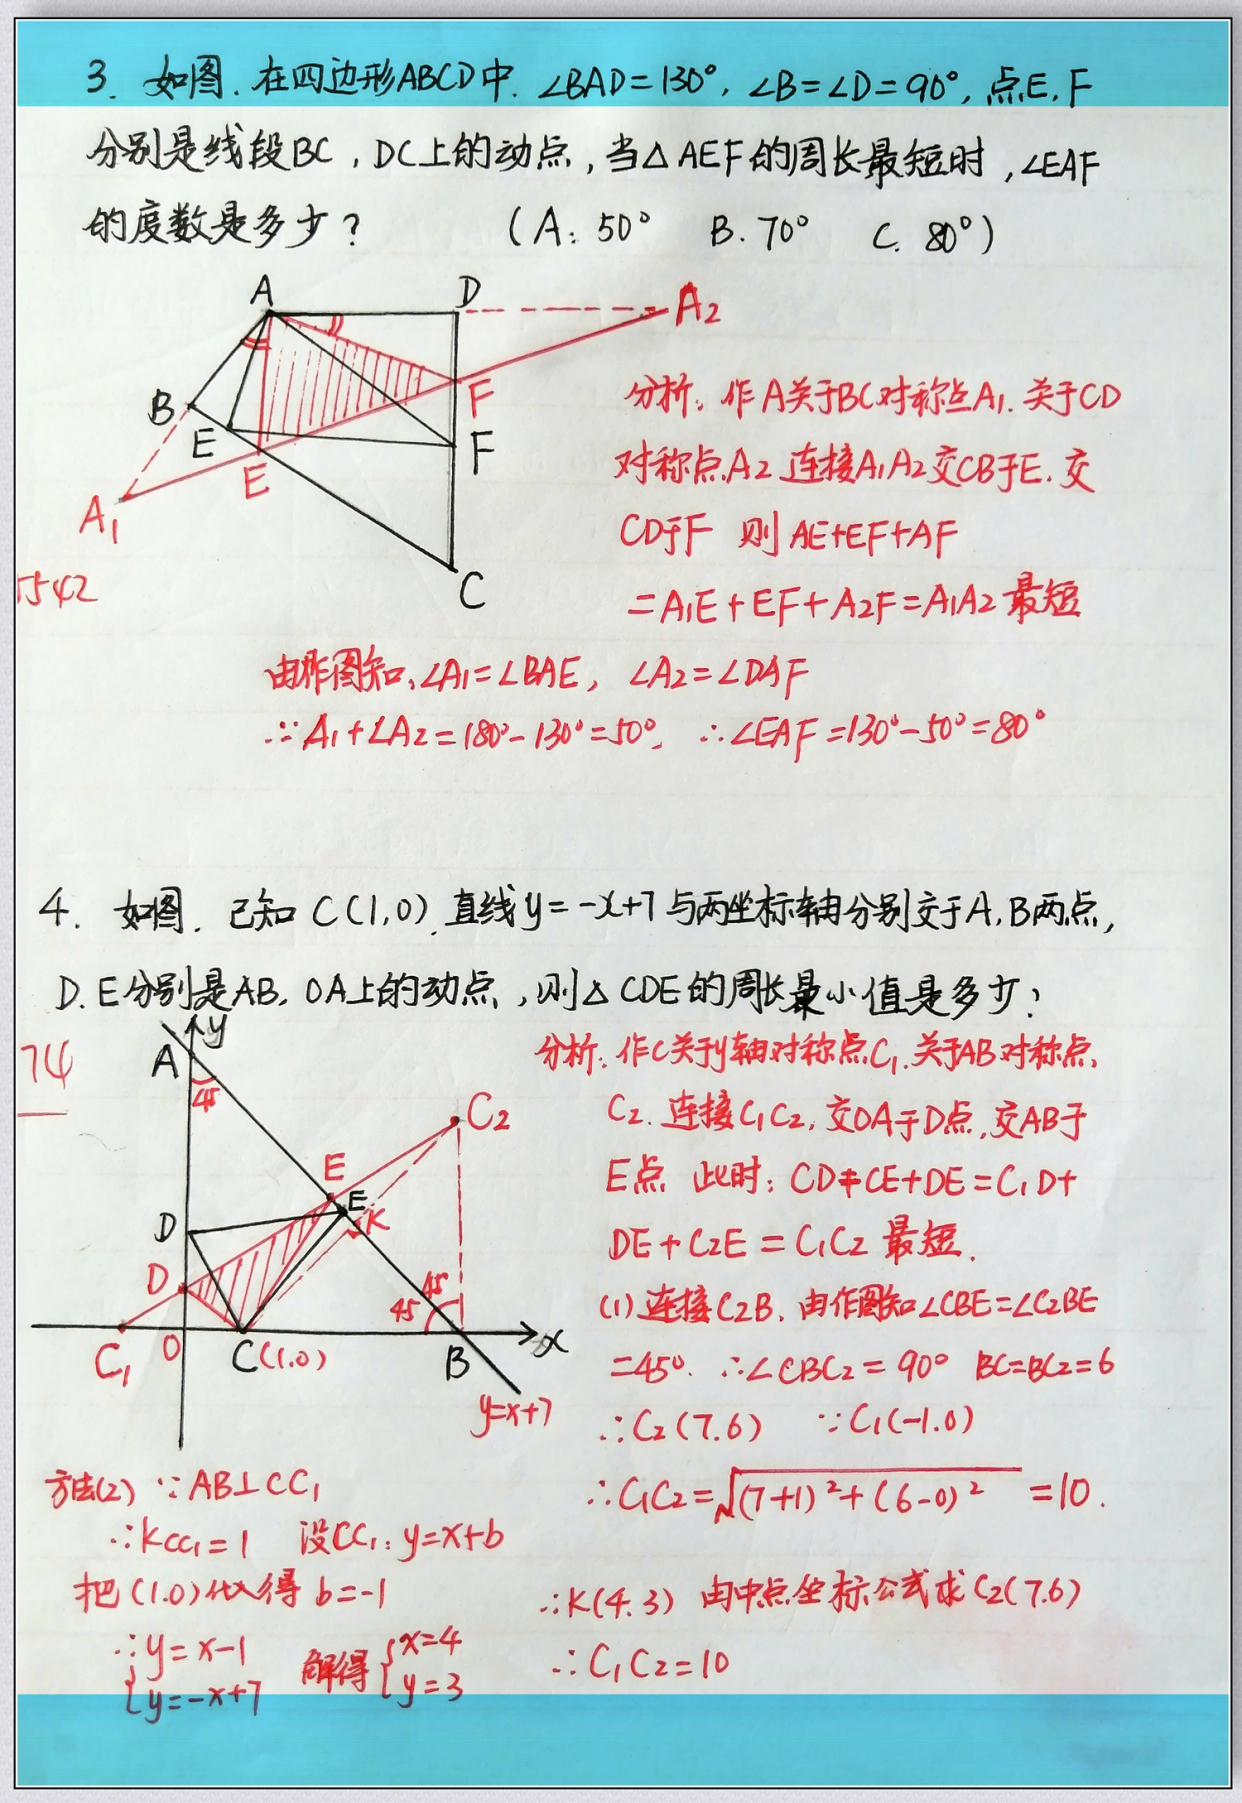 3. 如图.在四边形ABCD中.∠BAD=130°,∠B=∠D=90°,点E.F
分别是线段BC,DC上的动点,当△AEF的周长最短时,∠EAF
的度数是多少? (A: 50° B. 70° C. 80°)
A D A2
B E F
F
E
A1
C
5542
分析: 作A关于BC对称点A1.关于CD
对称点A2 连接A1A2交CB于E.交
CD于F 则 AE+EF+AF
=A1E+EF+A2F=A1A2 最短
由作图知,∠A1=∠BAE, ∠A2=∠DAF
∵A1+∠A2=180°-130°=50°, ∴∠EAF=130°-50°=80°
4. 如图.已知C(1,0).直线y=-x+7与两坐标轴分别交于A,B两点,
D.E分别是AB,OA上的动点,则△CDE的周长最小值是多少?
74
A y
45
C2
E
E
K
D
D
45 45
C1 O C(1.0) B x
y=x+7
分析:作C关于y轴对称点C1.关于AB对称点
C2.连接C1C2,交OA于D点,交AB于
E点 此时:CD+CE+DE=C1D+
DE+C2E=C1C2 最短.
(1)连接C2B,由作图知∠CBE=∠C2BE
=45°.∴∠CBC2=90° BC=BC2=6
∴C2(7.6) ∵C1(-1.0)
∴C1C2=√(7+1)²+(6-0)² =10.
方法(2) ∵AB⊥CC1
∴Kcc1=1 设CC1:y=x+b
把(1.0)代入得 b=-1
∴{y=x-1 y=-x+7 解得{x=4 y=3
∴K(4.3) 由中点坐标公式求C2(7.6)
∴C1C2=10